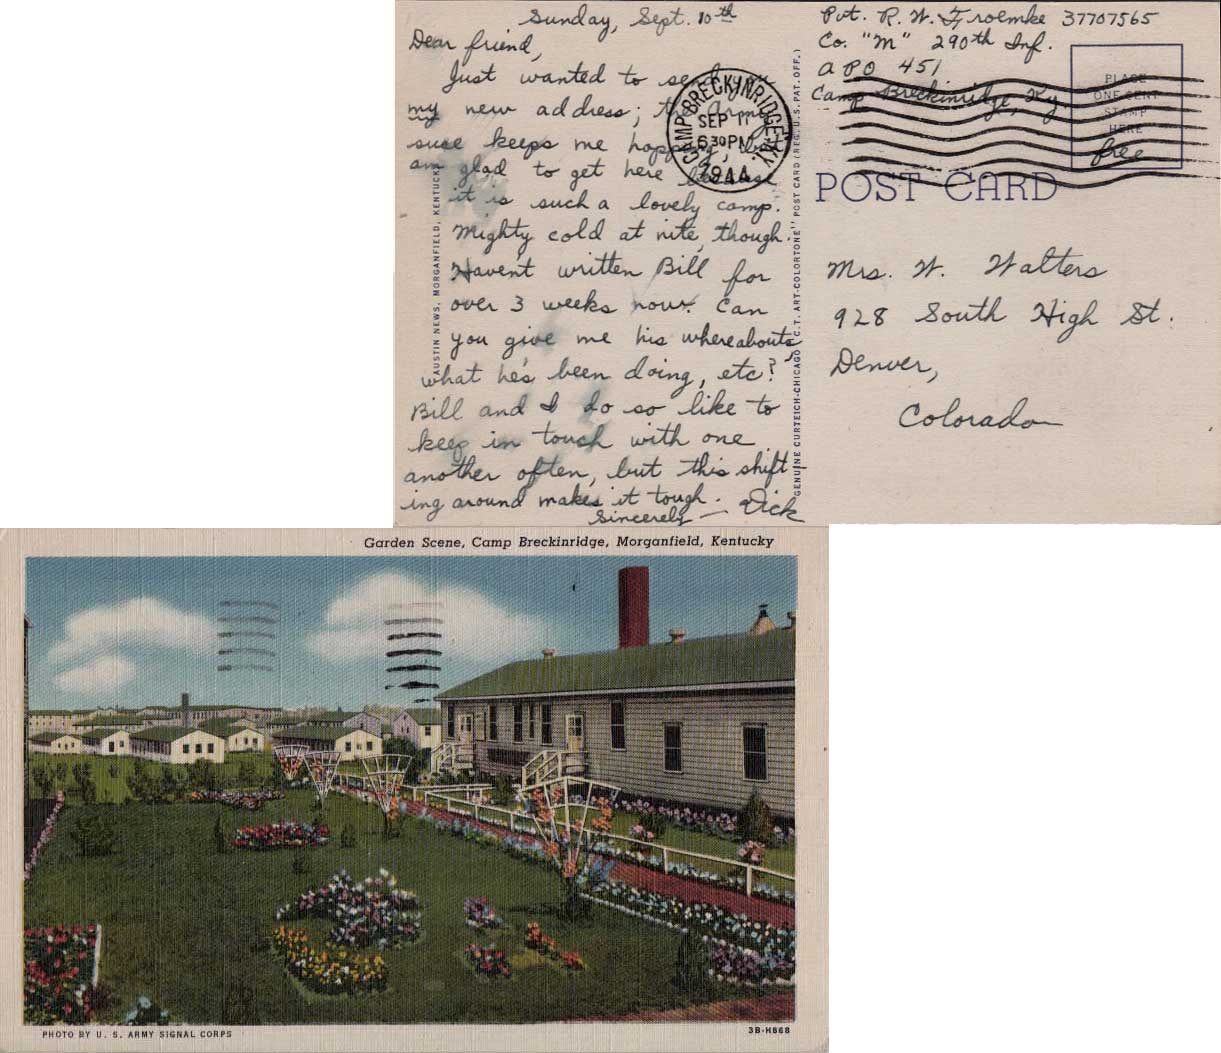 Sunday, Sept. 10th
Dear friend,
Just wanted to send you
my new address; the Army
sure keeps me hopping, but
am glad to get here because
it is such a lovely camp.
Mighty cold at nite, though.
Haven't written Bill for
over 3 weeks now. Can
you give me his whereabouts,
what he's been doing, etc?
Bill and I do so like to
keep in touch with one
another often, but this shift-
ing around makes it tough.
Sincerely — Dick
AUSTIN NEWS, MORGANFIELD, KENTUCKY
GENUINE CURTEICH-CHICAGO "C.T. ART-COLORTONE" POST CARD (REG. U.S. PAT. OFF.)
CAMP BRECKINRIDGE, KY.
SEP 11
630PM
1944
Pvt. R. W. Froemke 37707565
Co. "M" 290th Inf.
APO 451
Camp Breckinridge, Ky.
PLACE
ONE CENT
STAMP
HERE
free
POST CARD
Mrs. W. Walters
928 South High St.
Denver,
Colorado
Garden Scene, Camp Breckinridge, Morganfield, Kentucky
PHOTO BY U. S. ARMY SIGNAL CORPS
3B-H668